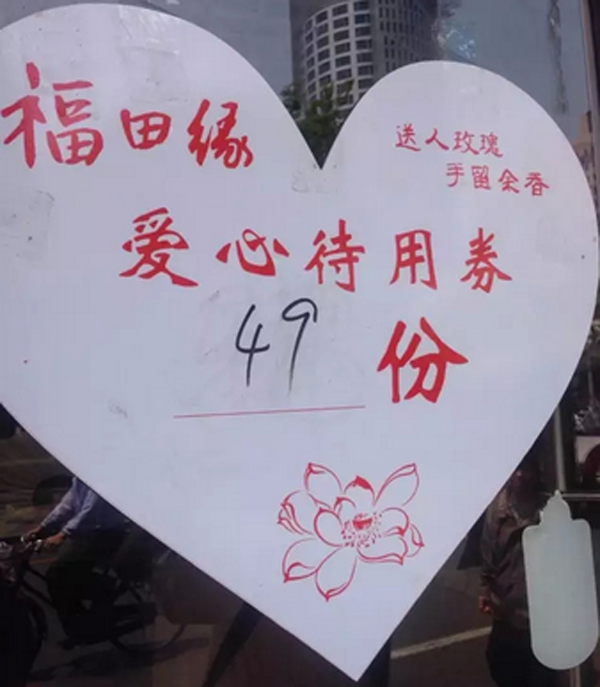 福田缘
送人玫瑰
手留余香
爱心待用券
49份